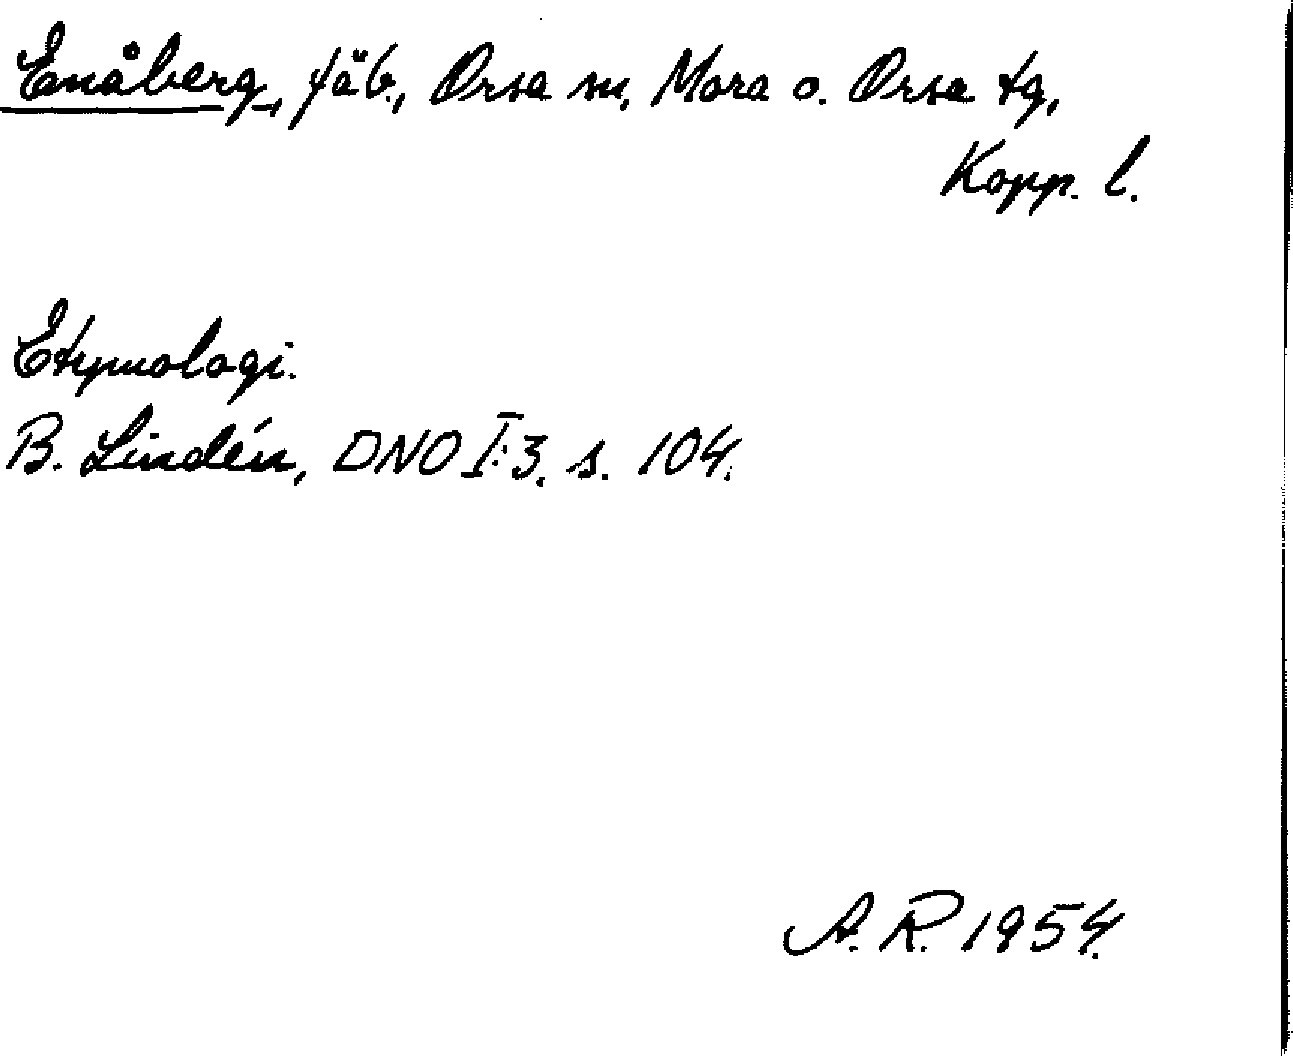 Enåberg, fäb., Orsa sn, Mora o. Orsa tg,
Kopp. l.
Etymologi.
B. Lindén, DNO I:3. s. 104.
A. R. 1954.